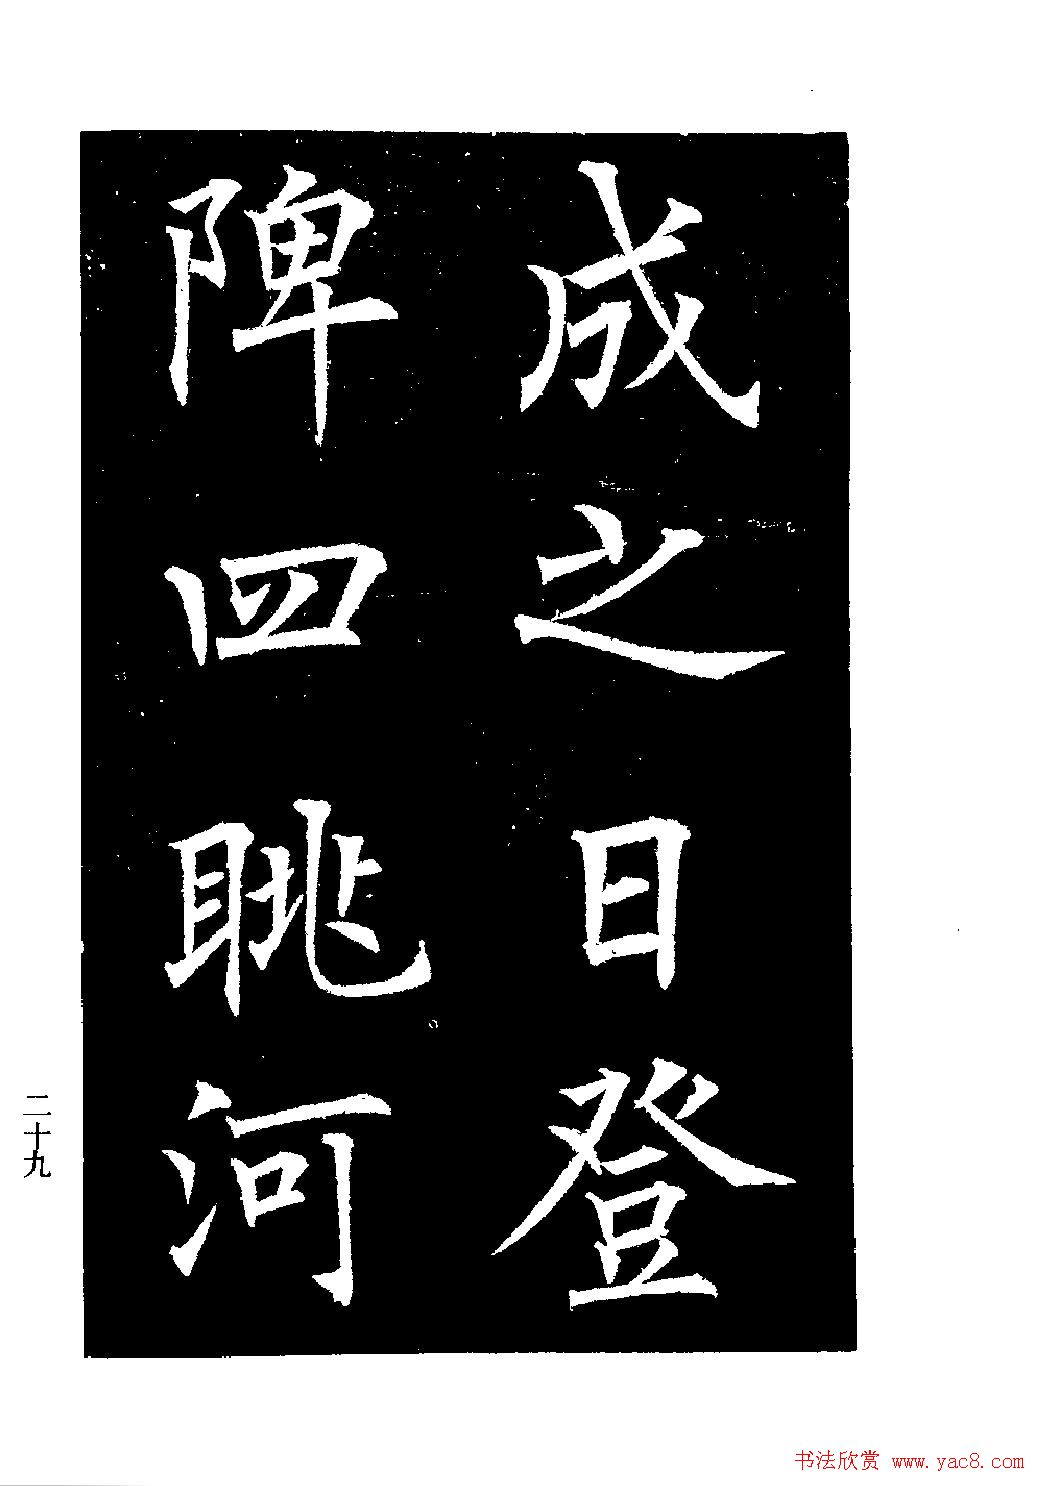 成之日登
陴四眺河
二十九
书法欣赏 www.yac8.com